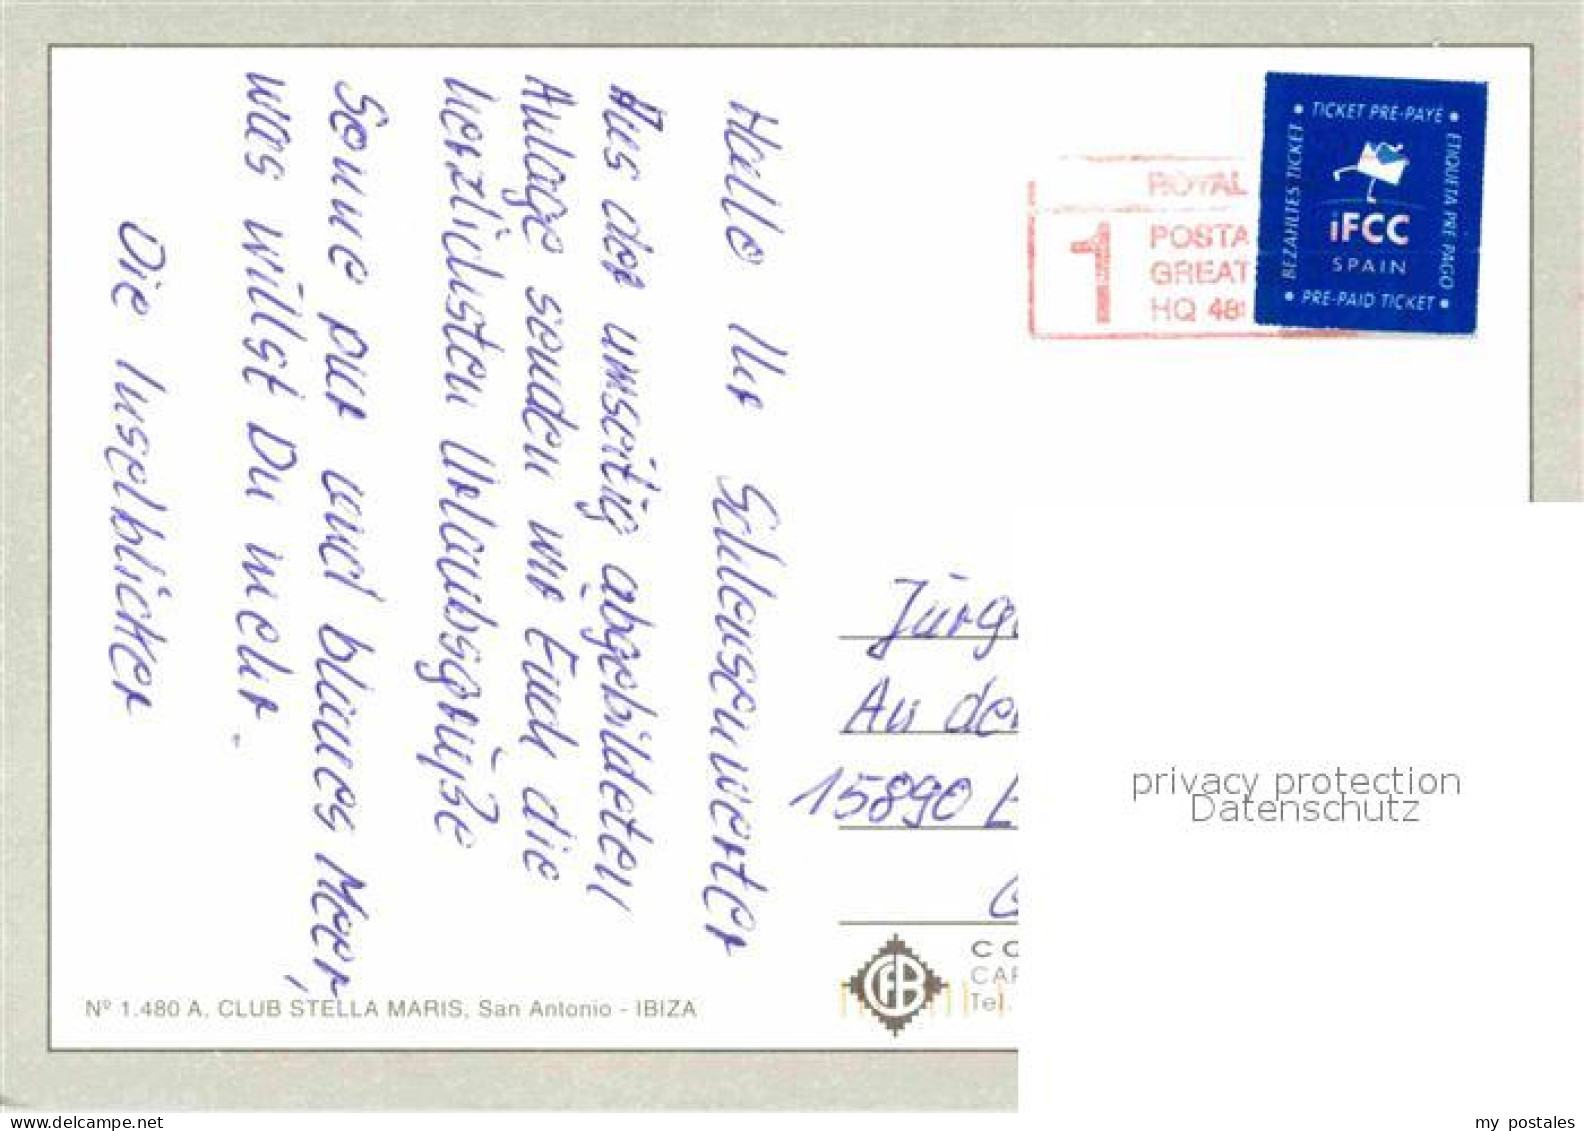 Hallo Ihr Schleusenwerter
Aus der umseitig abgebildeten
Anlage senden wir Euch die
herzlichsten Urlaubsgrüße
Sonne pur und blaues Meer,
was willst Du mehr.
Die Inselblicker
Nº 1.480 A. CLUB STELLA MARIS, San Antonio - IBIZA
ROYAL
1
POSTA
GREAT
HQ 48
• TICKET PRE-PAYÉ •
BEZAHLTES TICKET
ETIQUETA PRE PAGO
iFCC
SPAIN
• PRE-PAID TICKET •
Jürg
An de
15890
CFB
CO
CAR
Tel.
privacy protection
Datenschutz
www.ansichtskartenversand.com
my postales